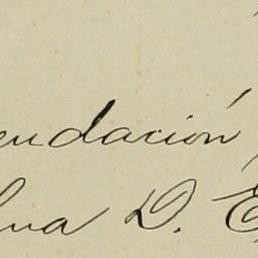 endación
lna D. E